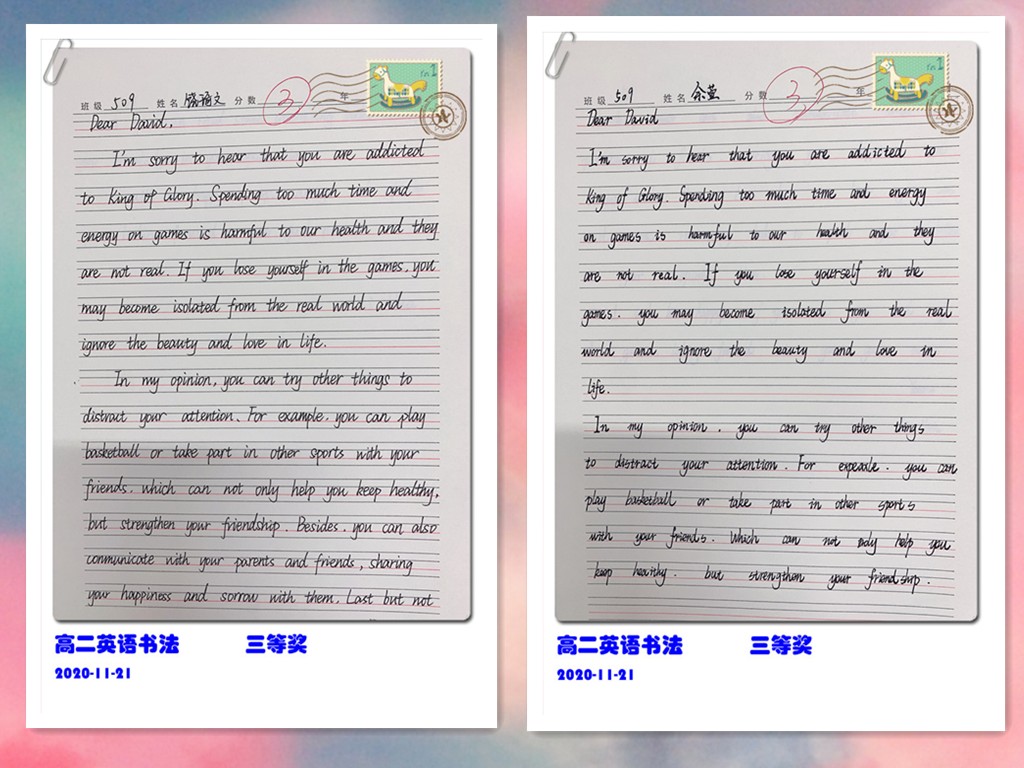 班级 509 姓名 文 分数 3 年
Dear David,
I'm sorry to hear that you are addicted
to King of Glory. Spending too much time and
energy on games is harmful to our health and they
are not real. If you lose yourself in the games, you
may become isolated from the real world and
ignore the beauty and love in life.
In my opinion, you can try other things to
distract your attention. For example, you can play
basketball or take part in other sports with your
friends. which can not only help you keep healthy,
but strengthen your friendship. Besides, you can also
communicate with your parents and friends, sharing
your happiness and sorrow with them. Last but not
高二英语书法 三等奖
2020-11-21
班级 509 姓名 余萱 分数 3 年
Dear David
I'm sorry to hear that you are addicted to
King of Glory. Spending too much time and energy
on games is harmful to our health and they
are not real. If you lose yourself in the
games. you may become isolated from the real
world and ignore the beauty and love in
life.
In my opinion. you can try other things
to distract your attention. For expeaxle. you can
play basketball or take part in other sports
with your friends. Which can not only help you
keep heaithy. but strengthen your friendship.
高二英语书法 三等奖
2020-11-21